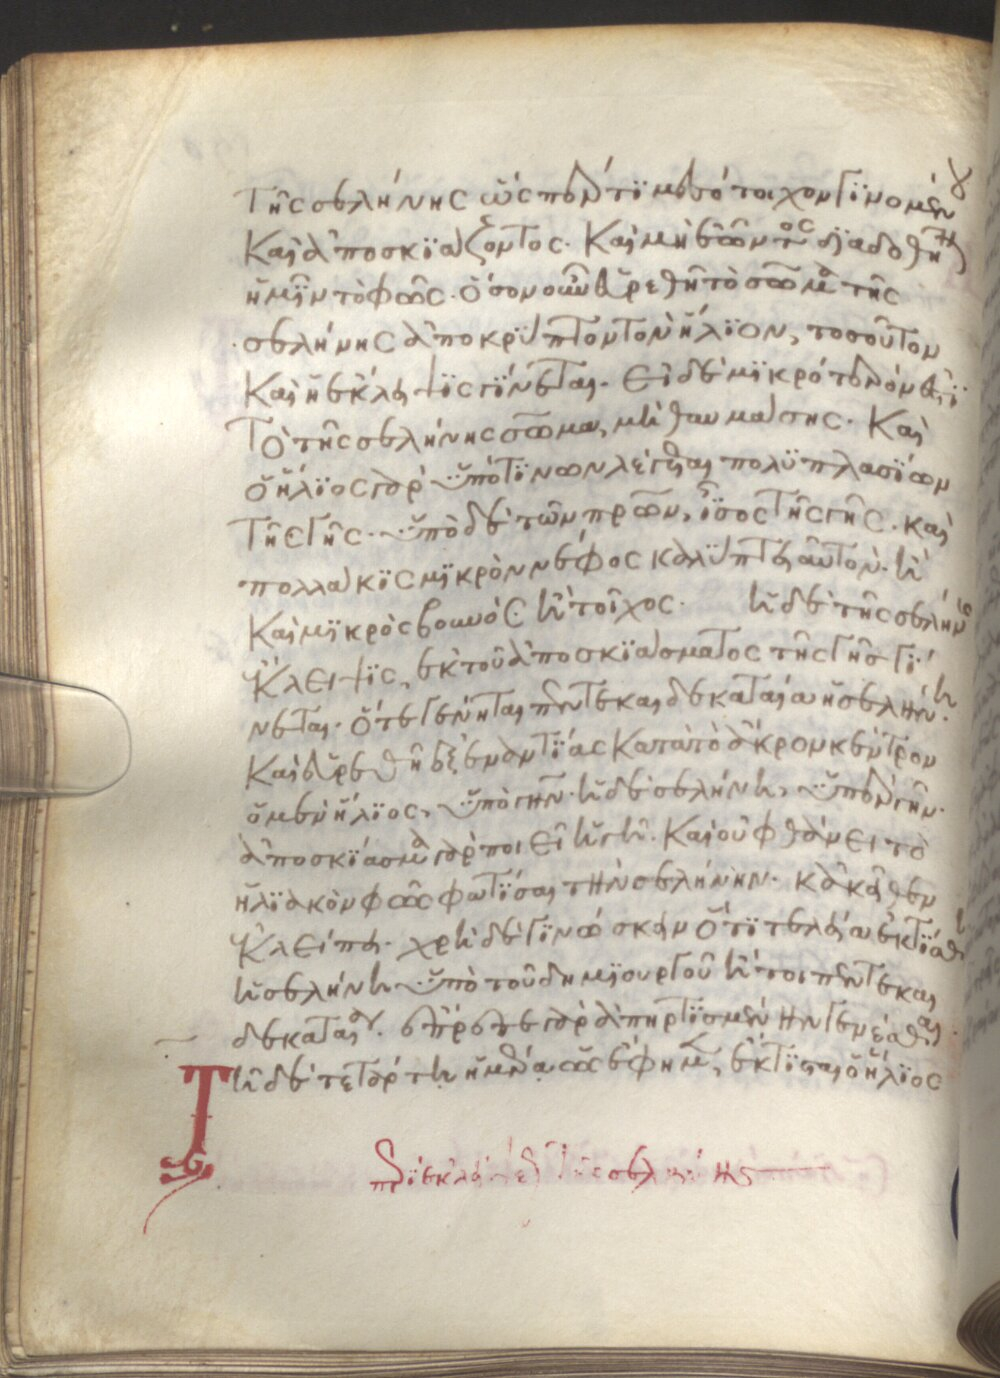 τῆς σελήνης ὥσπερ τϊ μεσότοιχον γϊνομέν
Καὶ ἀποσκϊάζοντος. Καὶ μὴ ἐῶντος δϊαδοθῆναι
ἡμῖν τὸ φῶς. ὅσον οὖν εὑρεθῆ τὸ σῶμα τῆς
σελήνης ἀποκρϋπτον τὸν ἥλϊον, τοσοῦτον
Καὶ ἡ ἔκλειψϊς γίνεται. Εἰ δὲ μϊκρότερόν ἐστϊ
Τὸ τῆς σελήνης σῶμα, μὴ θαυμάσης. Καὶ
ὁ ἥλϊος γὰρ ὑπό τϊνων λέγεται πολϋπλασΐων
Τῆς Γῆς. ὑπὸ δέ τϊνων, ἴσος τῆς γῆς. καὶ
πολλάκϊς μϊκρὸν νέφος καλΰπτει αὐτόν. ἢ
Καὶ μϊκρὸς βουνὸς ἢ τοῖχος. ἡ δὲ τῆς σελήνης
ἔκλειψϊς, ἐκ τοῦ ἀποσκϊάσματος τῆς Γῆς γί
νεται. ὅτε γένηται πεντεκαιδεκαταία ἡ σελήνη.
Καὶ εὑρεθῆ ἐξεναντΐας Κατὰ τὸ ἄκρον κέντρον
ὁ μὲν ἥλϊος, ὑπὸ γῆν. ἡ δὲ σελήνη, ὑπὲρ γῆν.
ἀποσκΐασμα γὰρ ποιεῖ ἡ γῆ. Καὶ οὐ φθάνει τὸ
ἡλϊακὸν φῶς φωτΐσαι τὴν σελήνην. κἀκεῖθεν
ἐκλείπει. χρὴ δὲ γϊνώσκειν ὅτϊ τελεία ἐκτΐσθη
ἡ σελήνη ὑπὸ τοῦ δημϊουργοῦ ἤτοι πεντεκαι
δεκαταία. ἔπρεπε γὰρ ἀπηρτϊσμένην γενέσθαι.
Τῆ δὲ τετάρτη ἡμέρα ὡς ἔφημεν, ἔκτϊσται ὁ ἥλϊος
περὶ ἐκλείψεως τῆς σελήνης